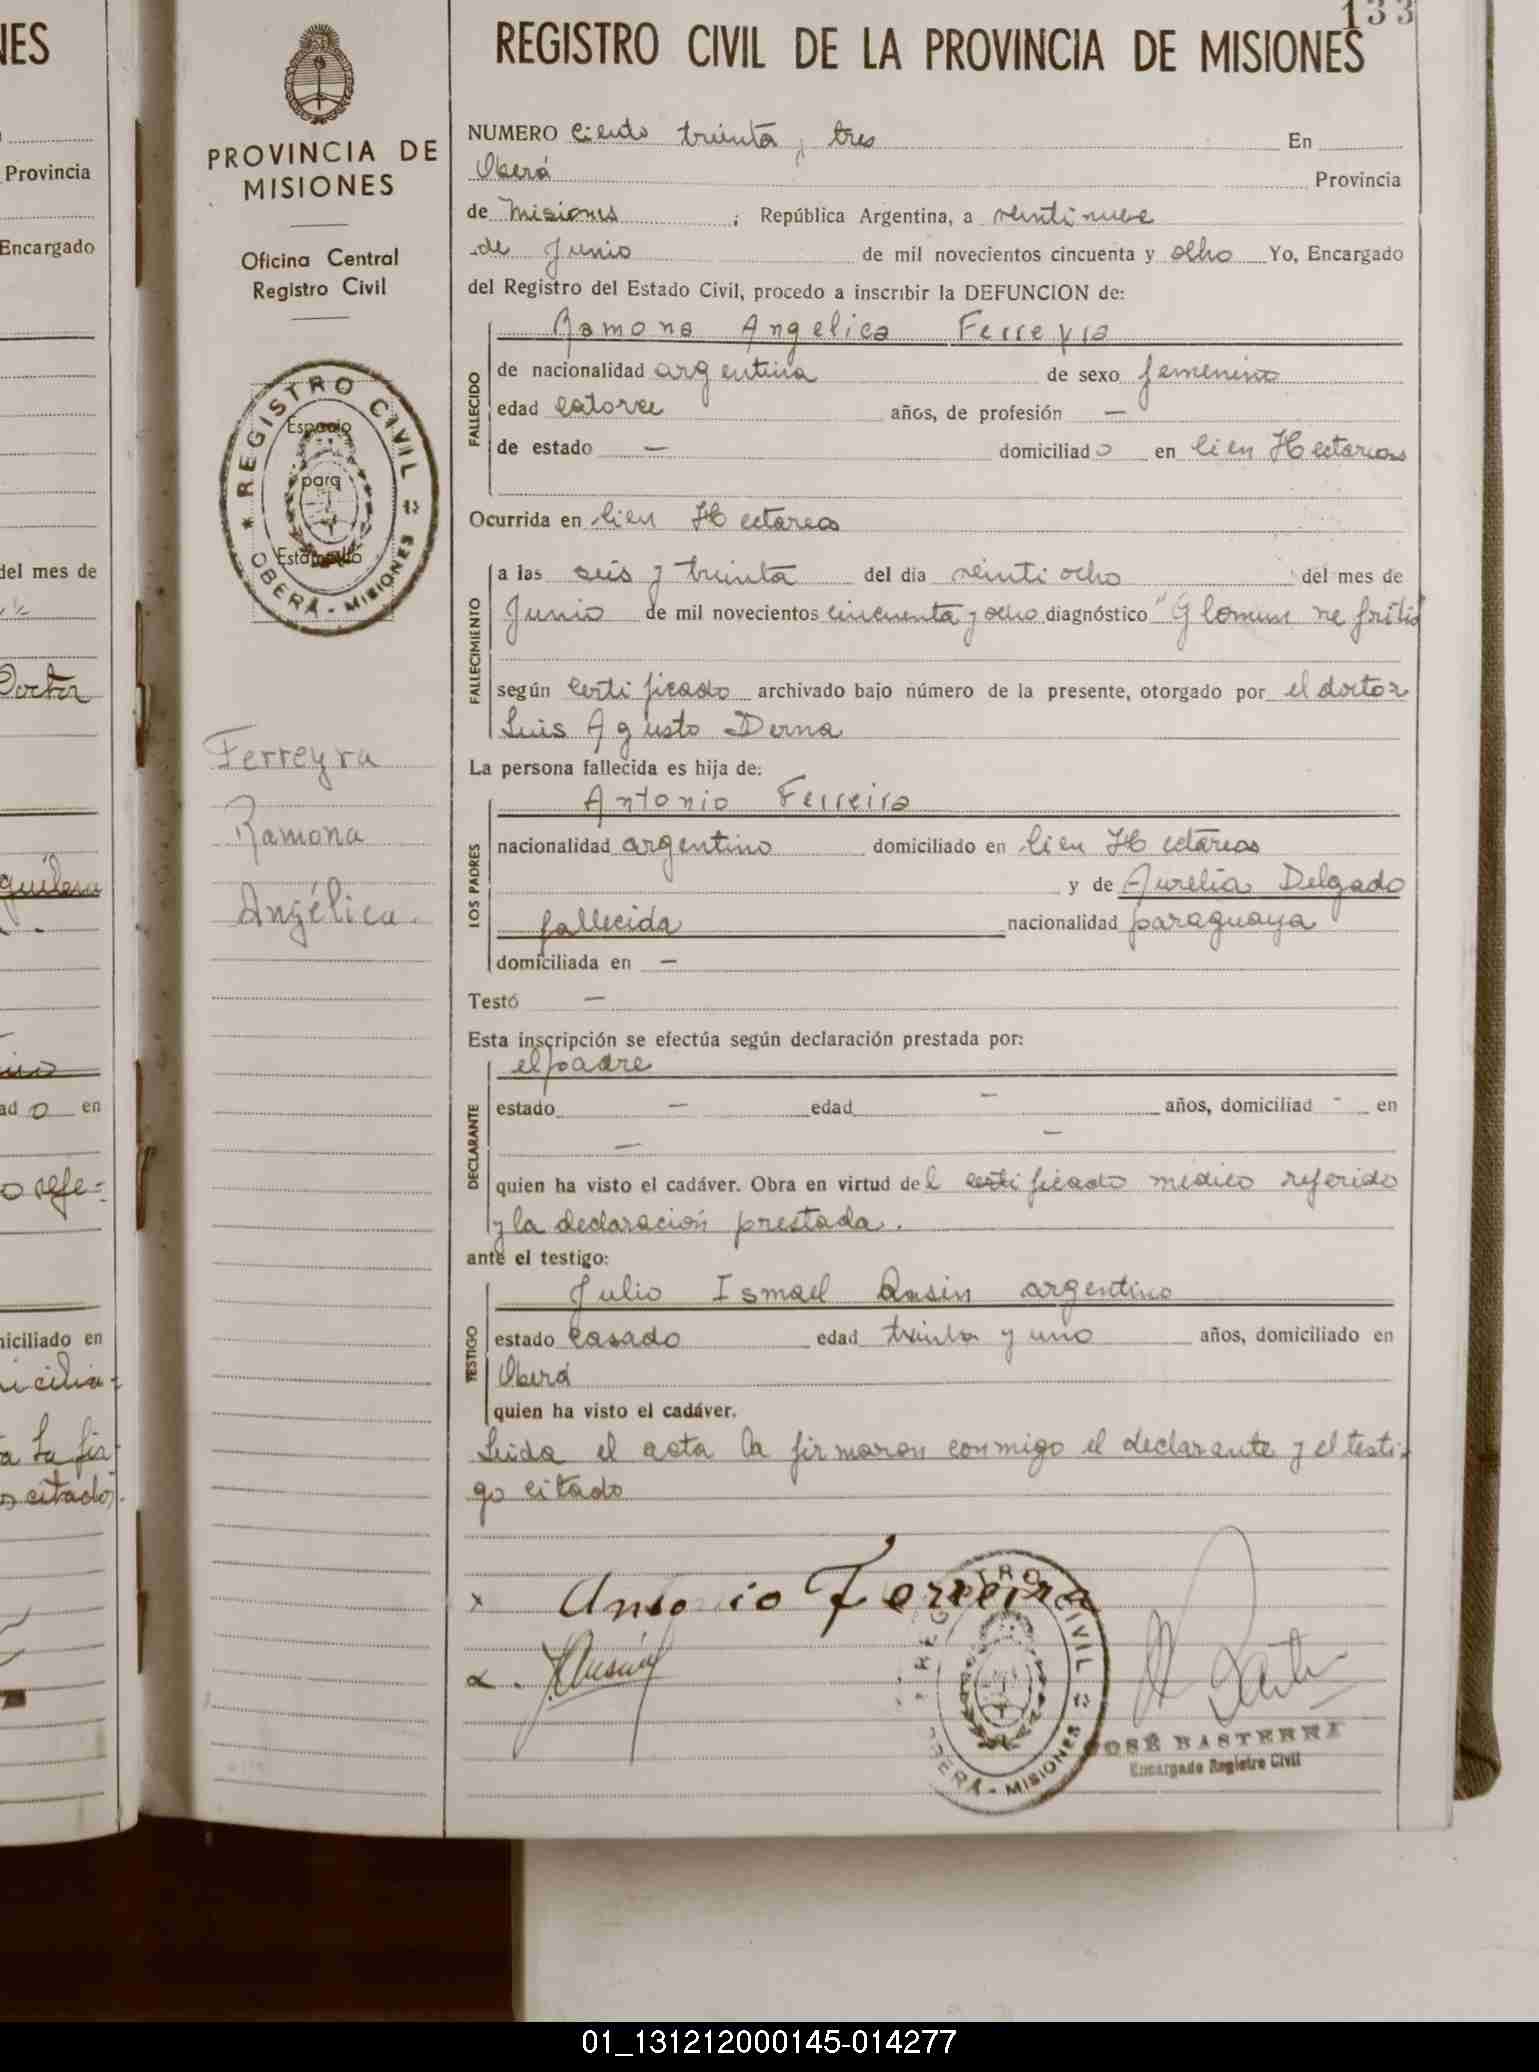 133
REGISTRO CIVIL DE LA PROVINCIA DE MISIONES
PROVINCIA DE
MISIONES
Oficina Central
Registro Civil
REGISTRO CIVIL
OBERÁ - MISIONES
Espacio
para
Estampillo
Ferreyra
Ramona
Angélica.
NUMERO ciento treinta y tres En
Oberá Provincia
de Misiones ; República Argentina, a veintinueve
de Junio de mil novecientos cincuenta y ocho Yo, Encargado
del Registro del Estado Civil, procedo a inscribir la DEFUNCION de:
FALLECIDO
Ramona Angelica Ferreyra
de nacionalidad argentina de sexo femenino
edad catorce años, de profesión —
de estado — domiciliado en Cien Hectareas
Ocurrida en Cien Hectareas
FALLECIMIENTO
a las seis y treinta del día veinti ocho del mes de
Junio de mil novecientos cincuenta y ocho diagnóstico "Glomeru nefritis
según certificado archivado bajo número de la presente, otorgado por el doctor
Luis Agusto Derna
La persona fallecida es hija de:
LOS PADRES
Antonio Ferreira
nacionalidad argentino domiciliado en Cien Hectareas
y de Aurelia Delgado
fallecida nacionalidad paraguaya
domiciliada en —
Testó —
Esta inscripción se efectúa según declaración prestada por:
DECLARANTE
el padre
estado — edad — años, domiciliad - en
— —
quien ha visto el cadáver. Obra en virtud del certificado médico referido
y la declaración prestada.
ante el testigo:
TESTIGO
Julio Ismael argentino
estado casado edad treinta y uno años, domiciliado en
Oberá
quien ha visto el cadáver.
Leida el acta la firmaron conmigo el declarante y el testi-
go citado
x Antonio Ferreira
REGISTRO CIVIL
OBERÁ - MISIONES
JOSÉ BASTERRA
Encargado Registro Civil
NES
Provincia
Encargado
del mes de
Doctor
ad o en
o refe-
niciliado en
citado.
01_131212000145-014277